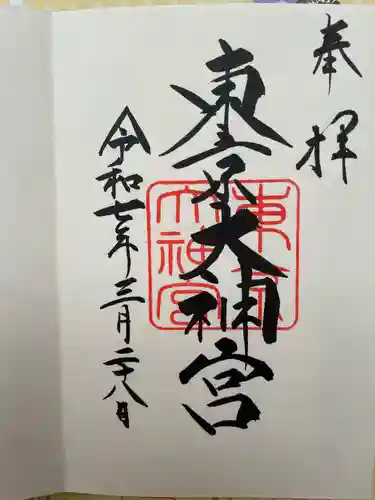 奉拝
東京大神宮
東京大神宮
令和七年三月二十八日